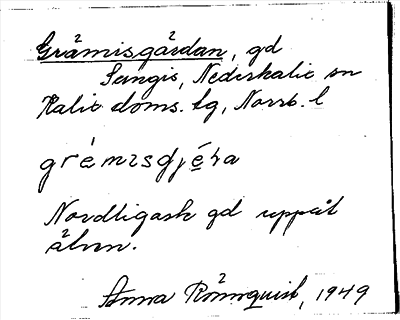 Gråmisgårdan, gd
Sangis, Nederkalix sn
Kalix doms. lg, Norrb. l
grémisgjéra
Nordligask gd uppåt
älven.
Anna Rönnquist, 1949